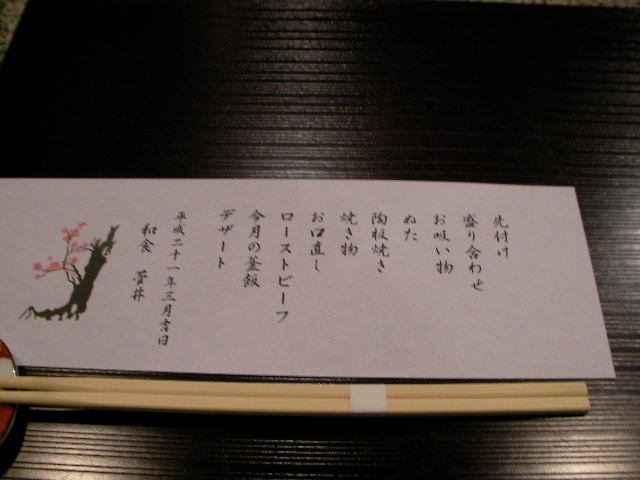 先付け
盛り合わせ
お吸い物
ぬた
陶板焼き
焼き物
お口直し
ローストビーフ
今月の釜飯
デザート
平成二十一年三月吉日
和食 菅井